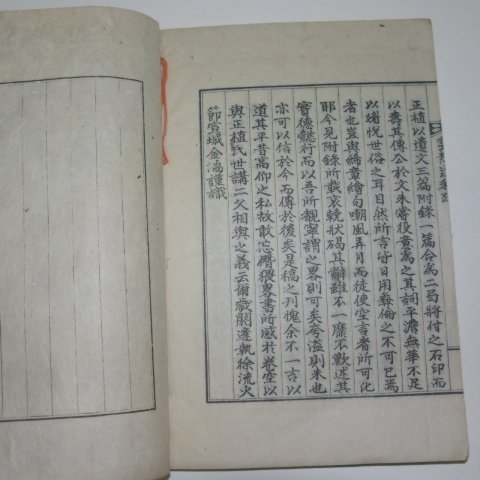 正植以遺文三篇附錄一篇合爲二局將付之石印而
以壽其傳公於文未嘗役意爲之其詞平澹無華不足
以媚悅世俗之耳目然所言皆日用彝倫之不可已焉
者也豈與締章繪句嘲風弄月而徒使空言者所可比
耶今見附錄所載哀輓狀碣其辭雖不一靡不歎述其
實德懿行而以吾所覩寧謂之畧則可矣夸溢則未也
亦可以信於今而傳於後矣是稿之刊愧余不一言以
道其平昔高仰之私故敢忘僭猥畧書所感於卷空以
與正植氏世講二父相與之義云爾歲閼逢執徐流火
節宣城金 謹識